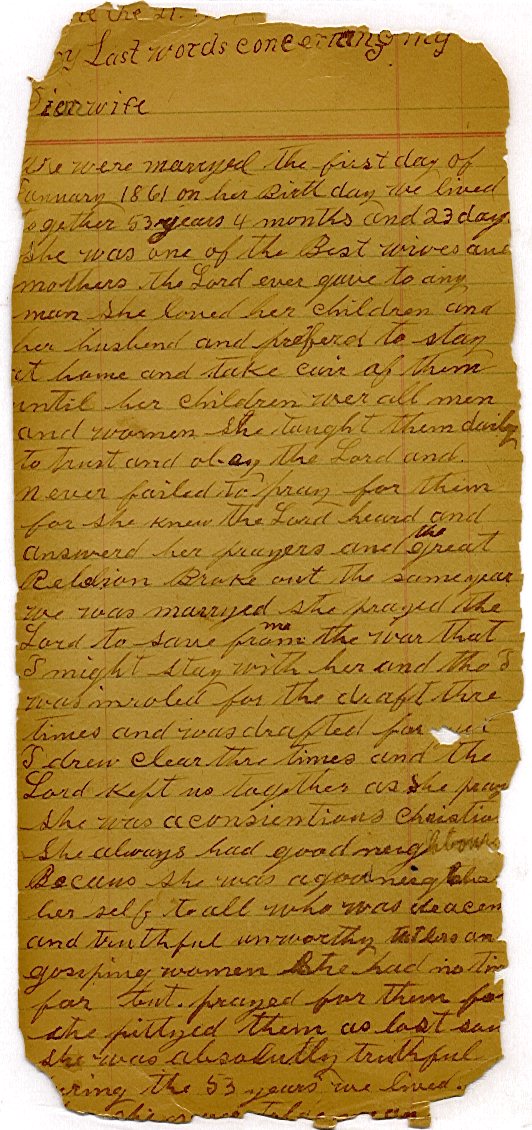 the 21.
My Last words concerning my
Dier wife
We were marryed the first day of
January 1861 on her Birth day we lived
together 53 years 4 months and 23 days
She was one of the Best wives and
mothers the Lord ever gave to any
man She loved her children and
her husbend and prefered to stay
at home and take cair of them
until her children wer all men
and women She taught them daily
to trust and obey the Lord and.
never failed to pray for them
for she knew the Lord heard and
answerd her prayers and the great
Rebelion Broke out the same year
we was marryed she prayed the
Lord to save me from the war that
I might stay with her and tho I
was inroled for the draft thre
times and was drafted
I drew clear thre times and the
Lord kept us together as she pray
she was a consientious christian
She always had good neighbours
Becaus she was a good neighbor
her self to all who was deacen
and truthful unworthy
gosiping women She had no tim
for but. prayed for them for
she pittyed them as lost sou
she was absolutly truthful
during the 53 years we lived.